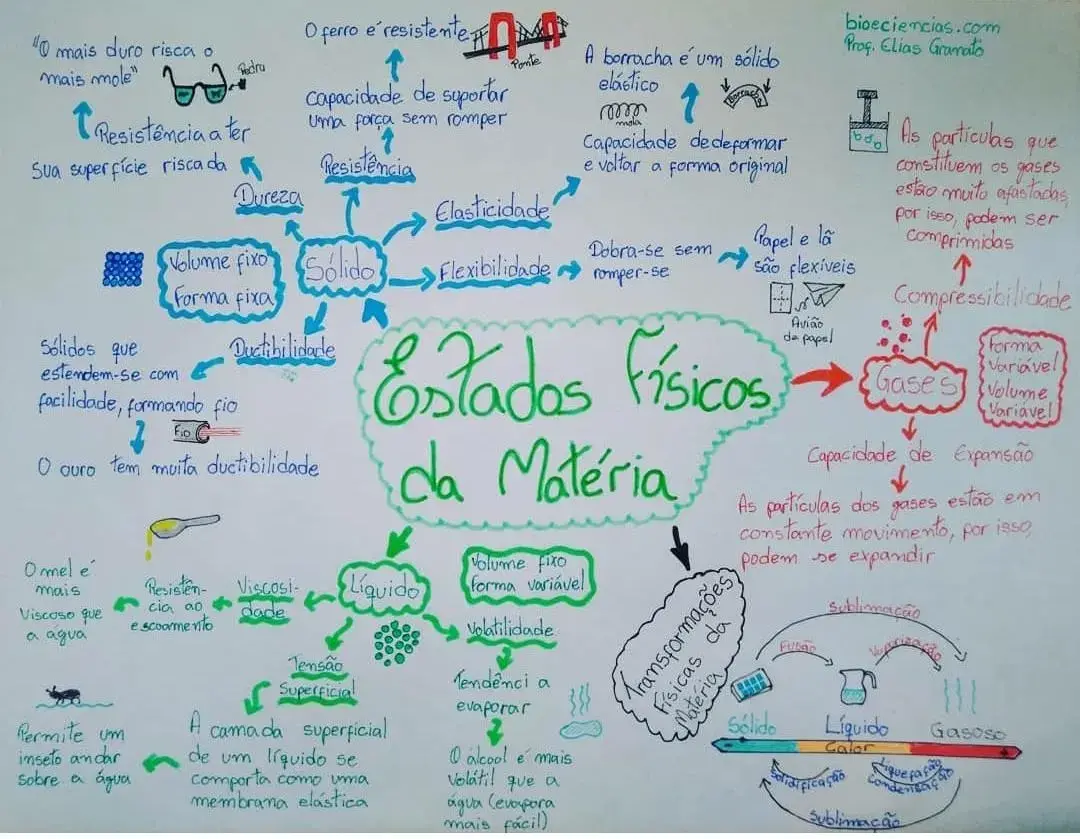 bioeciencias.com
Prof. Elias Gramató
Estados Físicos
da Matéria
Sólido
Volume fixo
Forma fixa
Dureza
Resistência a ter
sua superfície riscada
"O mais duro risca o
mais mole"
Pedra
Resistência
Capacidade de suportar
uma força sem romper
O ferro é resistente
Ponte
Elasticidade
Capacidade de deformar
e voltar a forma original
A borracha é um sólido
elástico
mola
Borracha
Flexibilidade
Dobra-se sem
romper-se
Papel e lã
são flexíveis
Avião
de papel
Ductibilidade
Sólidos que
estendem-se com
facilidade, formando fio
Fio
O ouro tem muita ductibilidade
Gases
Forma
Variável
Volume
Variável
Compressibilidade
As partículas que
constituem os gases
estão muito afastadas,
por isso, podem ser
comprimidas
Capacidade de Expansão
As partículas dos gases estão em
constante movimento, por isso,
podem se expandir
Líquido
Volume fixo
forma variável
Viscosi-
dade
Resistên-
cia ao
escoamento
O mel é
mais
Viscoso que
a água
Tensão
Superficial
A camada superficial
de um líquido se
comporta como uma
membrana elástica
Permite um
inseto andar
sobre a água
Volatilidade
Tendênci a
evaporar
O álcool é mais
volátil que a
água (evapora
mais fácil)
Transformações
Físicas da
Matéria
Sublimação
Fusão
Vaporização
Sólido
Líquido
Gasoso
- Calor +
Solidificação
Liquefação
Condensação
Sublimação